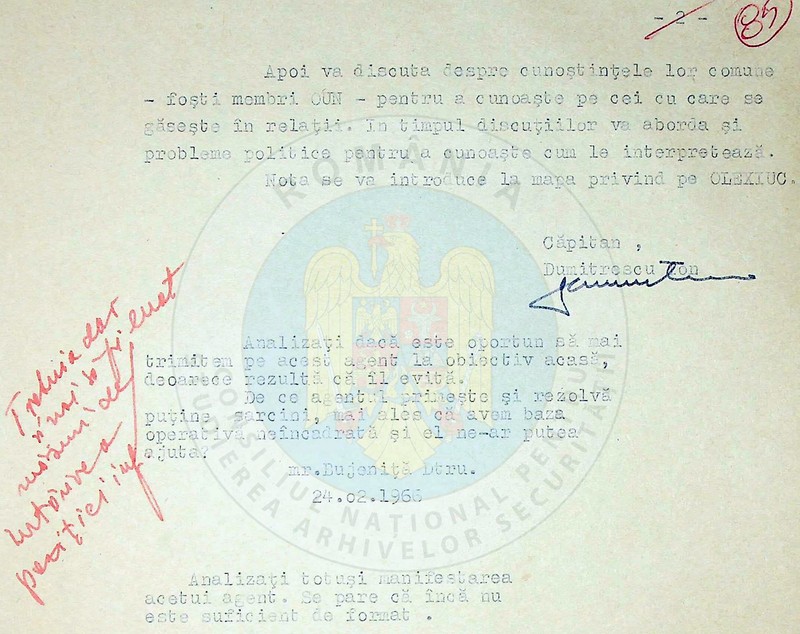 - 2 -
84
Apoi va discuta despre cunoştinţele lor comune
- foşti membri OUN - pentru a cunoaşte pe cei cu care se
găseşte în relaţii. In timpul discuţiilor va aborda şi
probleme politice pentru a cunoaşte cum le interpretează.
Nota se va introduce la mapa privind pe OLEXIUC.
Căpitan ,
Dumitrescu Ion
Analizaţi dacă este oportun să mai
trimitem pe acest agent la obiectiv acasă,
deoarece rezultă că îl evită.
De ce agentul primeşte şi rezolvă
puţine sarcini, mai ales că avem baza
operativă neîncadrată şi el ne-ar putea
ajuta?
mr.Bujeniţă Dtru.
24.02.1966
Analizaţi totuşi manifestarea
acetui agent. Se pare că încă nu
este suficient de format .
Trebuia dar
de
întărire a
poziţiei inf
ROMÂNIA
CONSILIUL NAŢIONAL PENTRU
STUDIEREA ARHIVELOR SECURITĂŢII